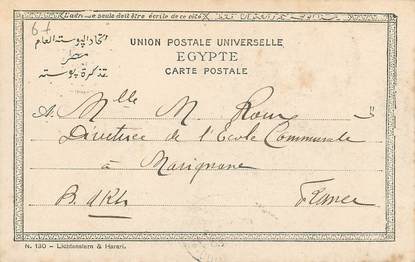 67
L'adresse seule doit être écrite de ce côté
اتحاد البوسته العام
مصر
تذكرة بوسته
UNION POSTALE UNIVERSELLE
EGYPTE
CARTE POSTALE
A. Mlle M. Roux
Directrice de l'Ecole Communale
à Marignane
B. d Rh
France
N. 130 - Lichtenstern & Harari.